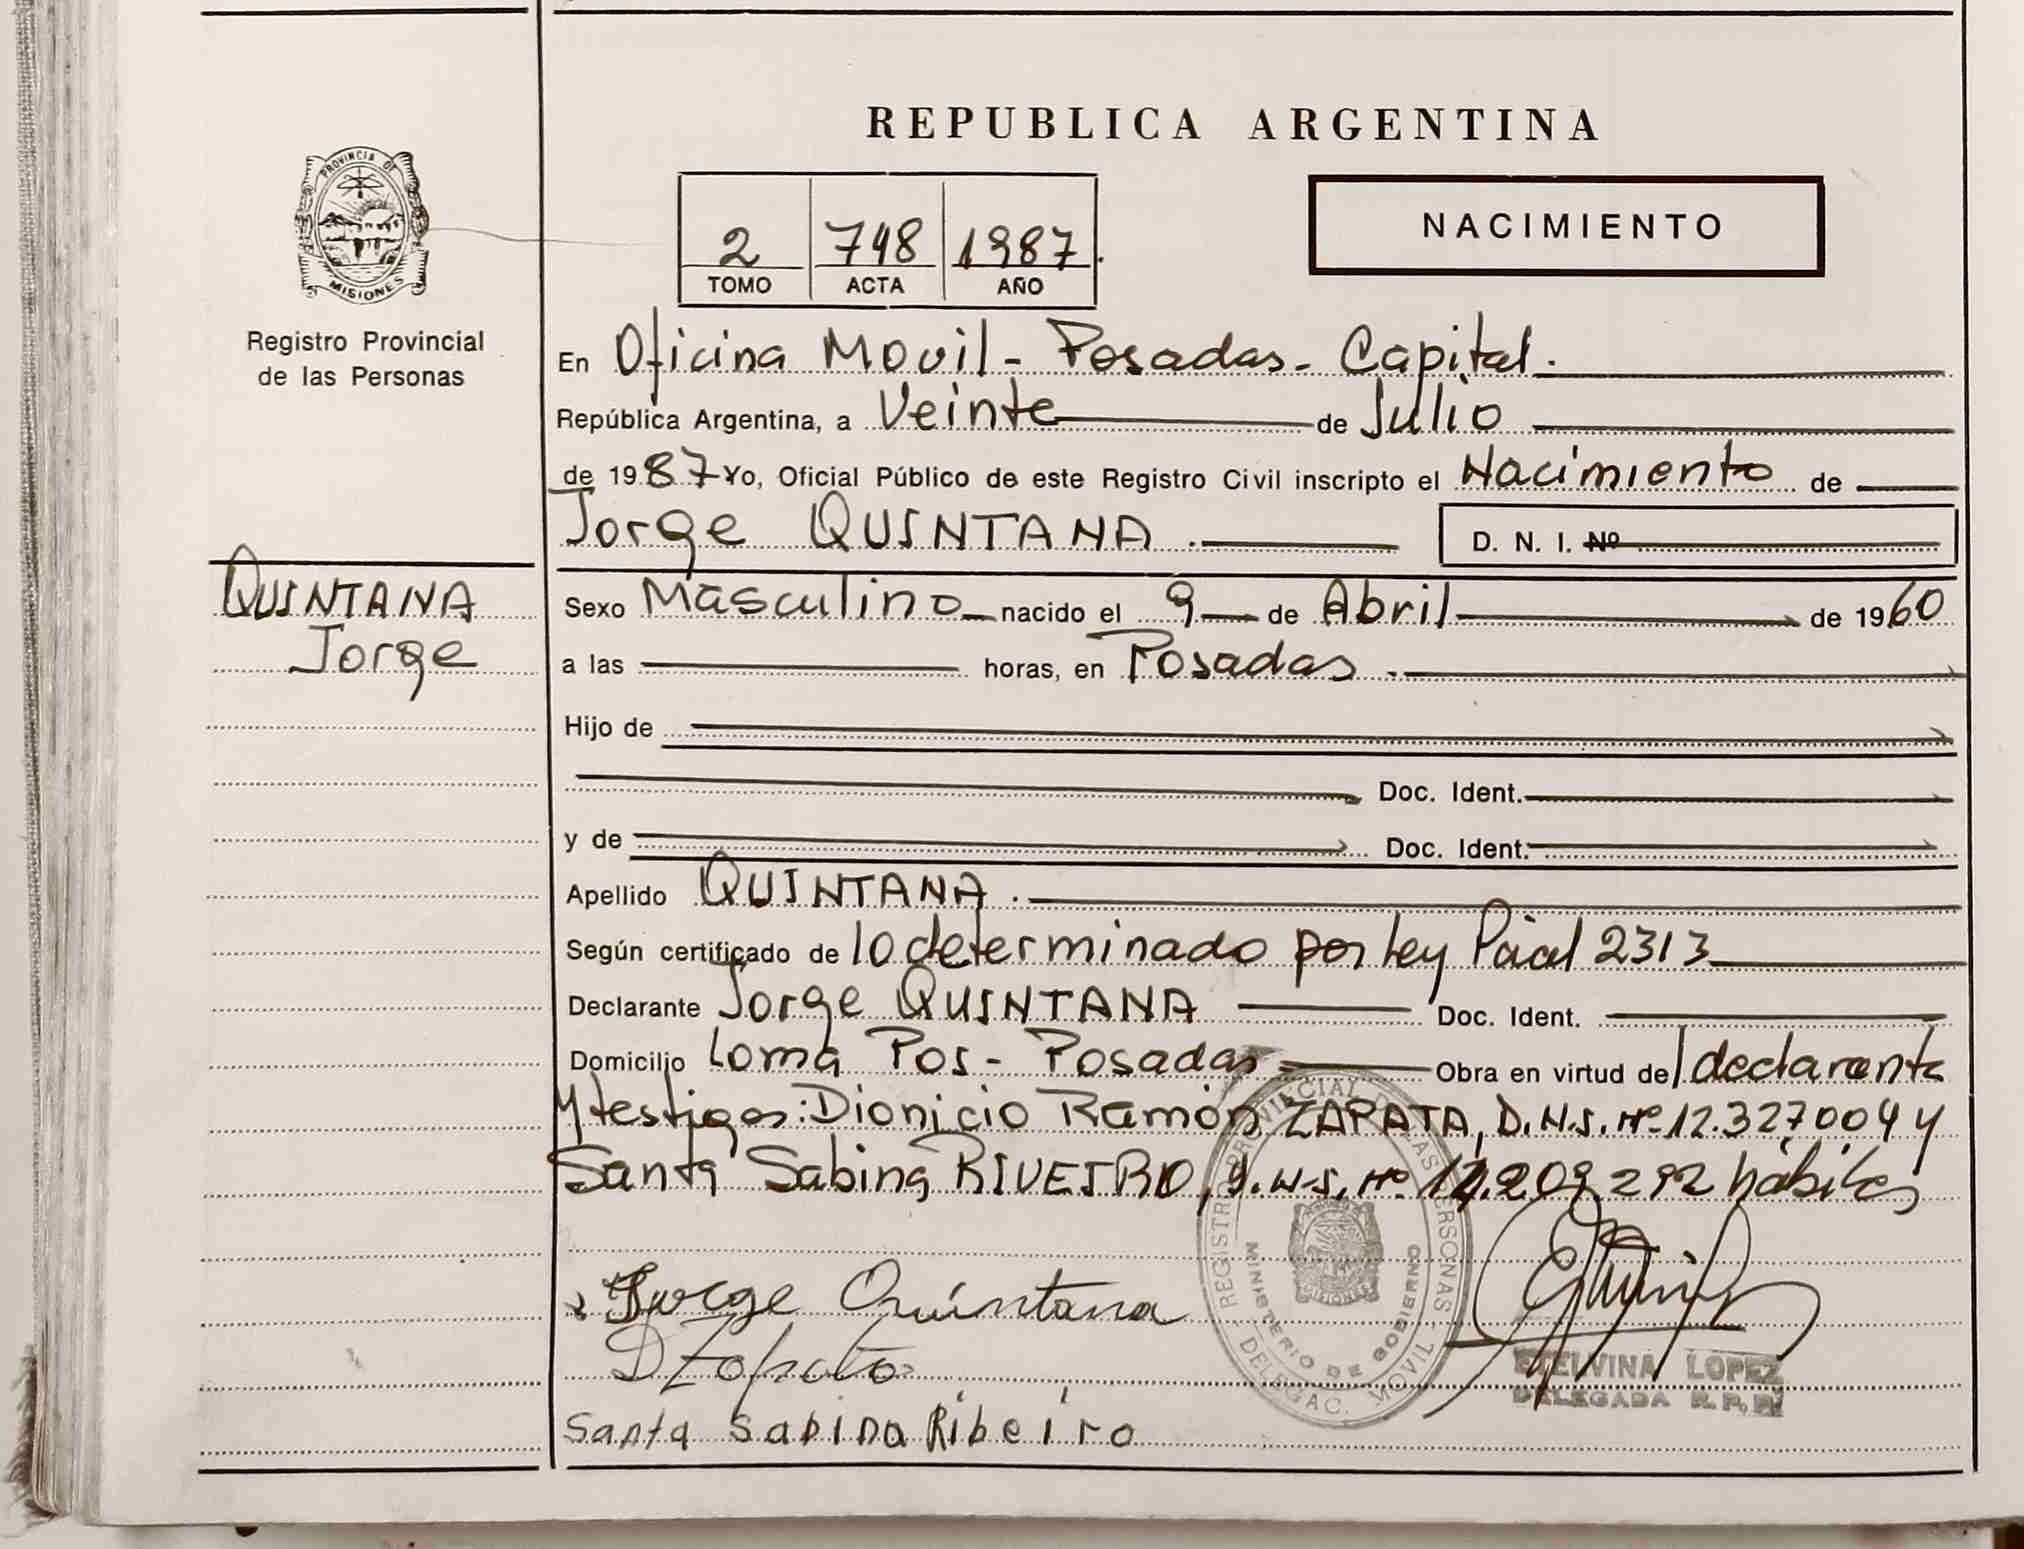 REPUBLICA ARGENTINA
PROVINCIA DE
MISIONES
Registro Provincial
de las Personas
2 748 1987
TOMO ACTA AÑO
NACIMIENTO
En Oficina Movil - Posadas - Capital.
República Argentina, a Veinte de Julio
de 1987 Yo, Oficial Público de este Registro Civil inscripto el Nacimiento de
Jorge QUINTANA. D. N. I. Nº
QUINTANA
Jorge
Sexo Masculino nacido el 9 de Abril de 1960
a las horas, en Posadas.
Hijo de
Doc. Ident.
y de Doc. Ident.
Apellido QUINTANA.
Según certificado de lo determinado por Ley Pcial 2313
Declarante Jorge QUINTANA Doc. Ident.
Domicilio Loma Pos - Posadas Obra en virtud del declarante
y testigos: Dionicio Ramón ZAPATA, D.N.I. Nº 12.327004 y
Santa Sabina RIVEIRO, D.N.I. Nº 209292 hábiles
REGISTRO PROVINCIAL DE LAS PERSONAS
MINISTERIO DE GOBIERNO
DELEGAC. MOVIL
Jorge Quintana
D Zapata
Santa Sabina Ribeiro
ETELVINA LOPEZ
DELEGADA R.P.P.